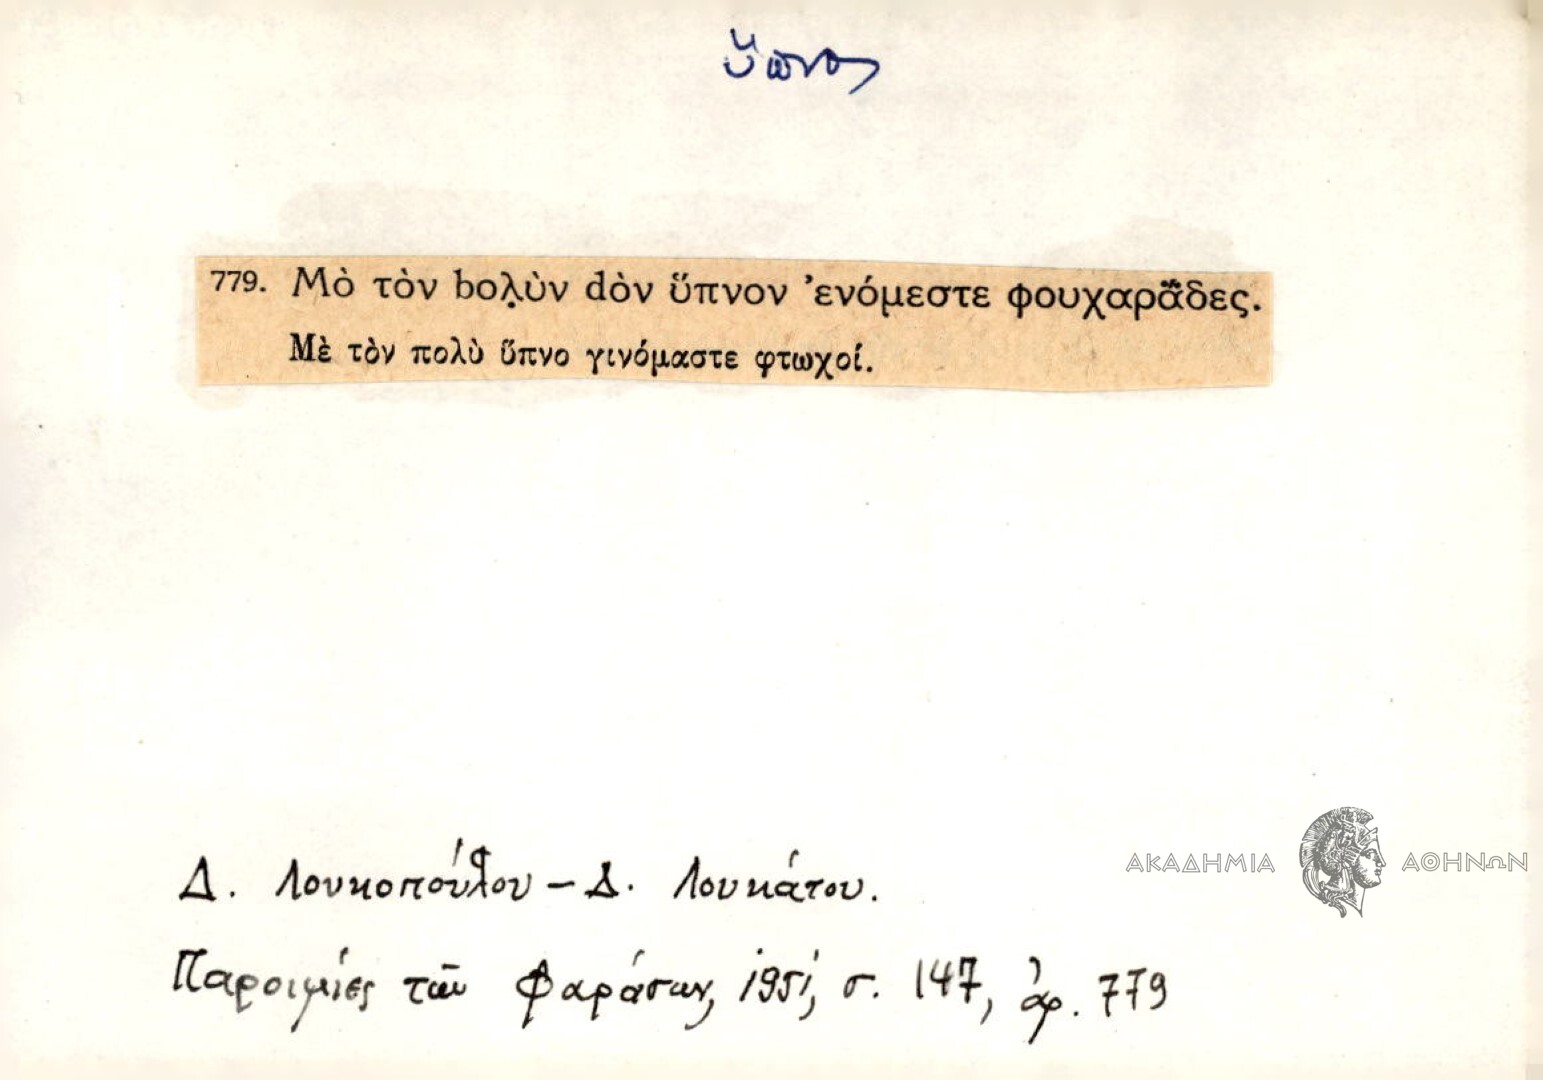 ὕπνος
779. Μὸ τὸν bοḷὺν dὸν ὕπνον ’ενόμεστε φουχαρᾶ̈δες.
Μὲ τὸν πολὺ ὕπνο γινόμαστε φτωχοί.
Δ. Λουκοπούλου – Δ. Λουκάτου.
ΑΚΑΔΗΜΙΑ ΑΘΗΝΩΝ
Παροιμίες τῶν Φαράσων, 1951, σ. 147, ἀρ. 779